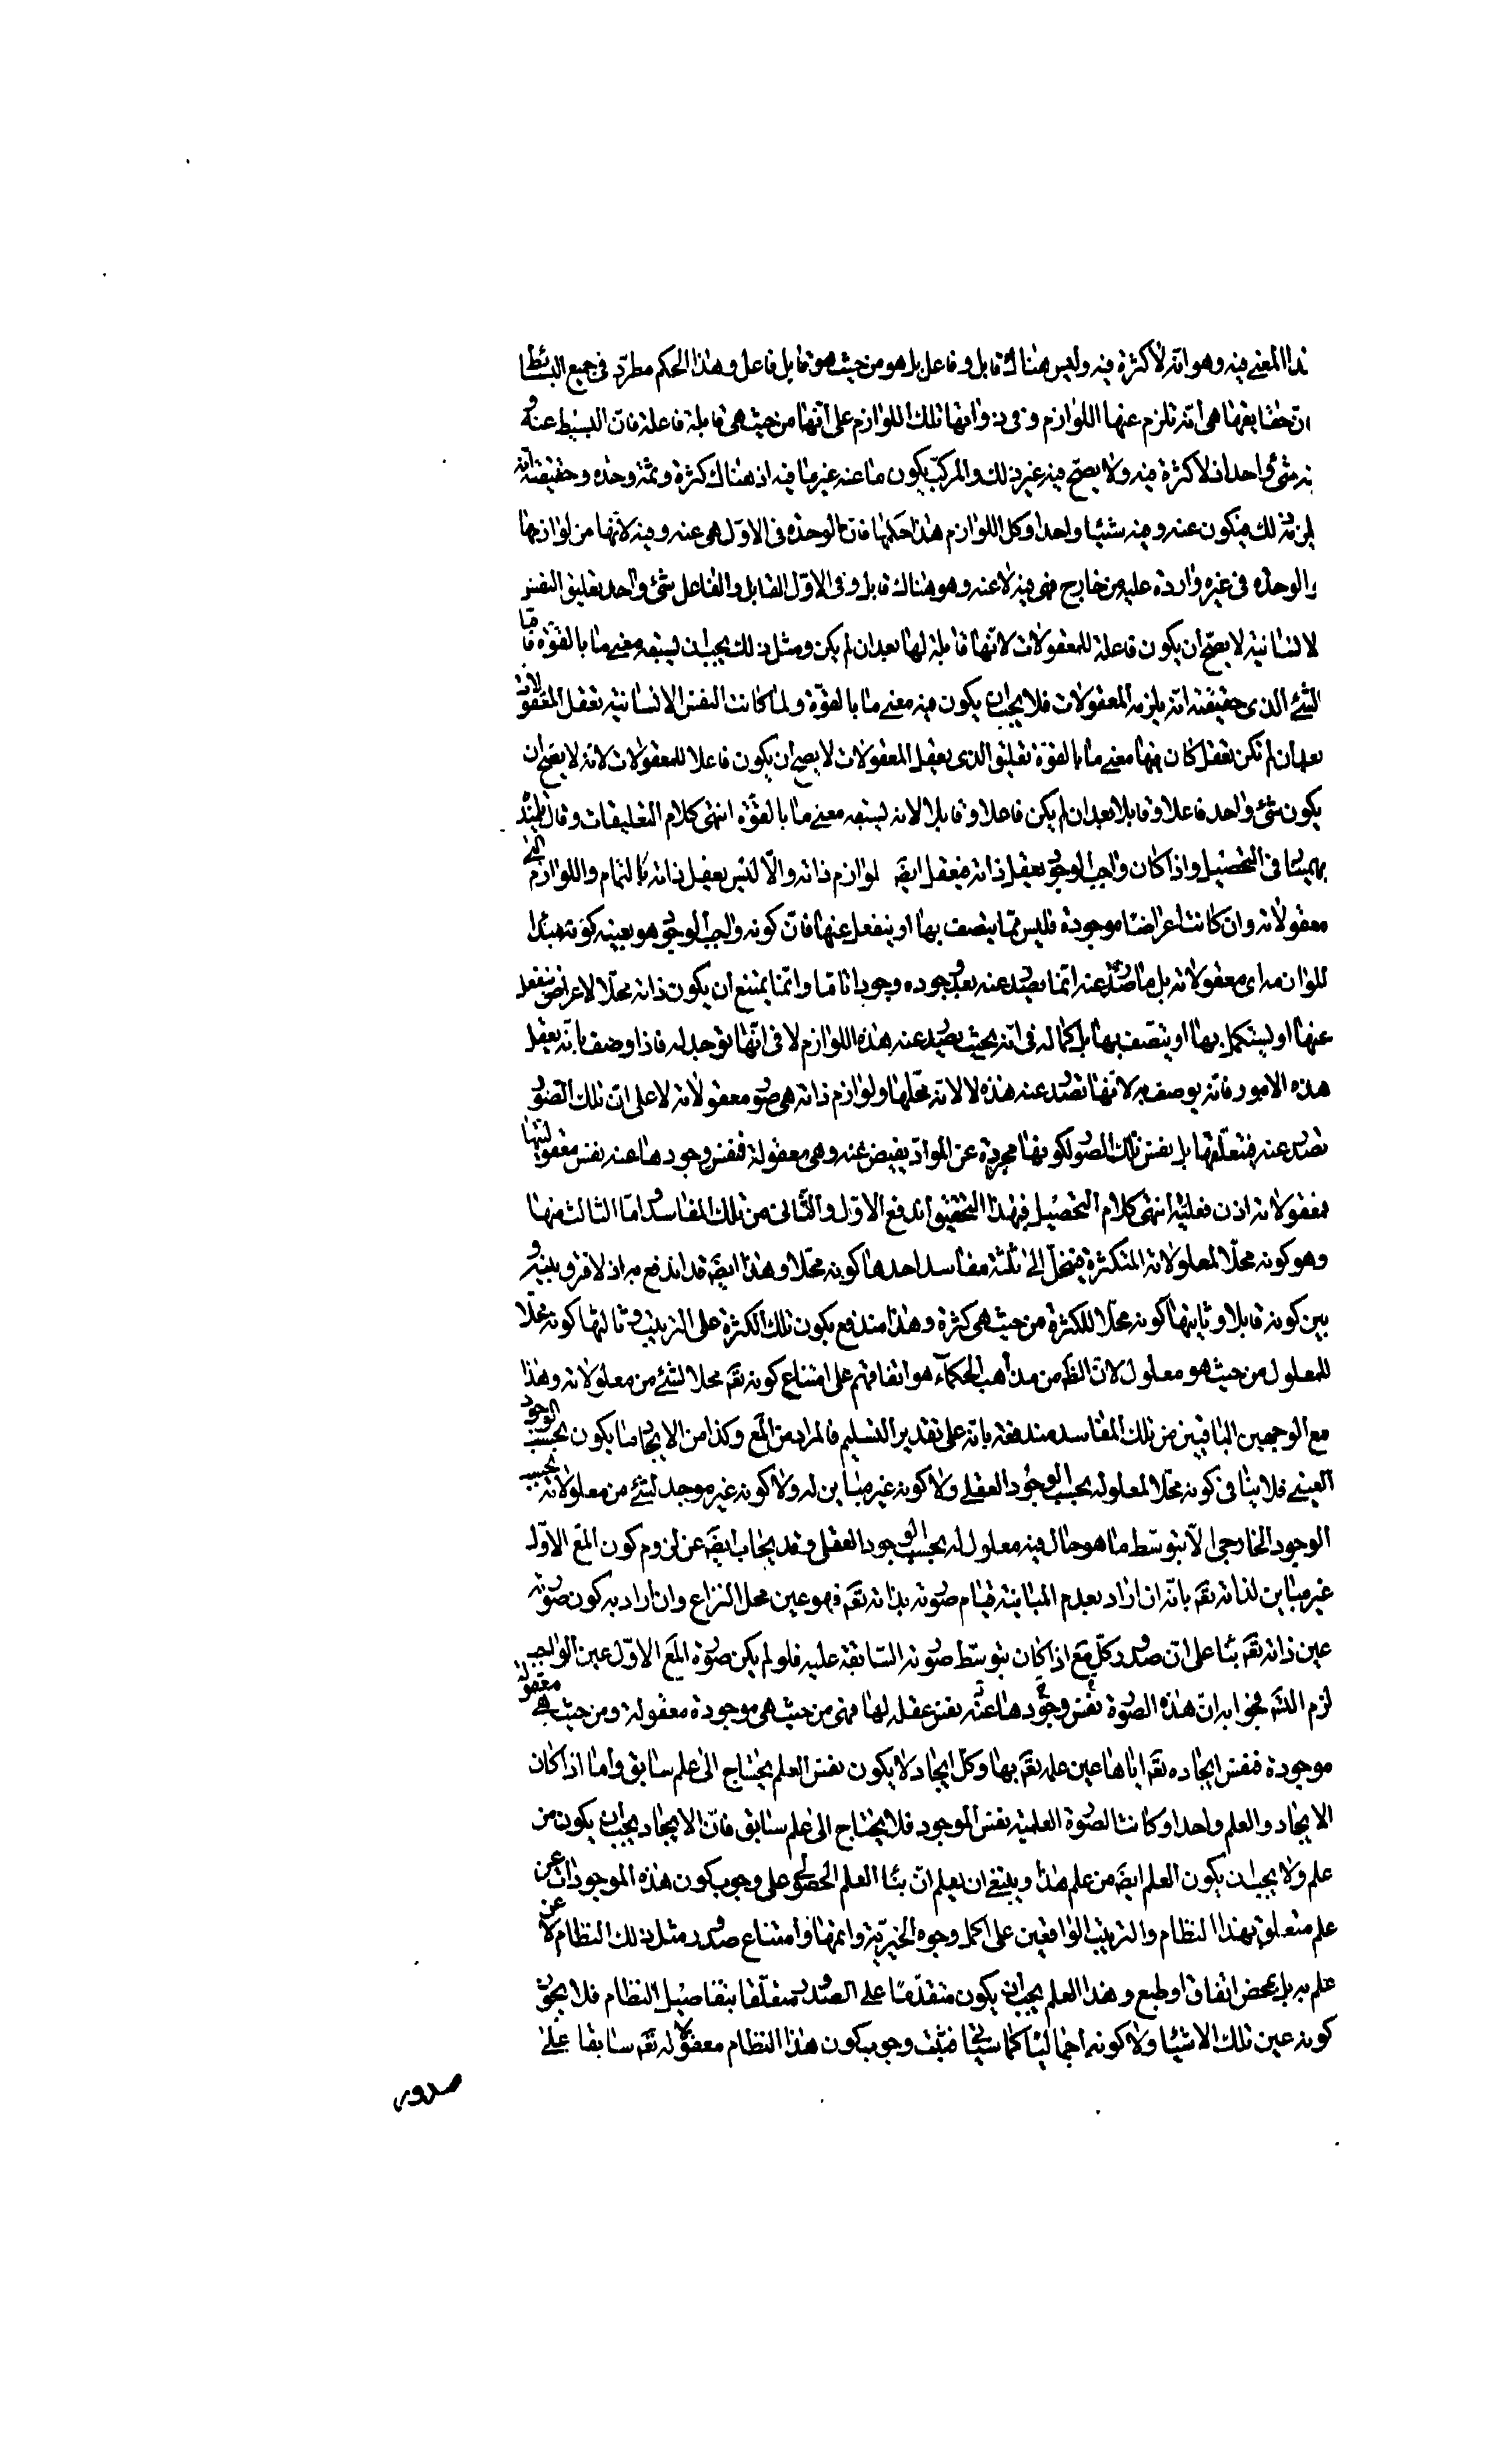 هذا المعنى فيه وهو انه لا كثرة فيه وليس هناك قابل وفاعل بل هو من حيث هو قابل فاعل وهذا الحكم مطرد فى جميع البسائط
ان حقايقها هى انه تلزم عنها اللوازم وفى ذواتها تلك اللوازم على انها من حيث هى قابلة فاعلة فان البسيط عنه و
فيه شئ واحد اذ لا كثرة فيه ولا يصح فيه غير ذلك والمركب يكون ما عنه غير ما فيه اذ هناك كثرة وثمة وحدة وحقيقته انه
يلزمه ذلك فيكون عنه وفيه شيئا واحدا وكل اللوازم هذا حكمها فان الوحدة فى الاول هى عنه وفيه لانها من لوازمها
والوحدة فى غيره واردة عليه من خارج فهى فيه لا عنه وهو هناك قابل وفى الاول القابل والفاعل شئ واحد تعليق النفس
الانسانية لا يصح ان يكون فاعلة للمعقولات لانها قابلة لها بعد ان لم يكن ومثل ذلك يجب ان يسبقه معنى ما بالقوة فاما
الشئ الذى حقيقته انه يلزمه المعقولات فلا يجب ان يكون فيه معنى ما بالقوة ولما كانت النفس الانسانية تعقل المعقولات
بعد ان لم تكن تعقل كان فيها معنى ما بالقوة تعليق الذى يعقل المعقولات لا يصح ان يكون فاعلا للمعقولات لانه لا يصح ان
يكون شئ واحد فاعلا وقابلا بعد ان لم يكن فاعلا وقابلا لانه يسبقه معنى ما بالقوة انتهى كلام التعليقات وقال تلميذه
بهمنيار فى التحصيل واذا كان واجب الوجود يعقل ذاته فيعقل ايضا لوازم ذاته والا ليس يعقل ذاته بالتمام واللوازم التى
معقولاته وان كانت اعراضا موجودة فليس مما يتصف بها او ينفعل عنها فان كونه واجب الوجود هو بعينه كونه مبدأ
للوازمه اى معقولاته بل ما يصدر عنه انما يصدر عنه بعد وجوده وجودا تاما وانما يمتنع ان يكون ذاته محلا لاعراض ينفعل
عنها او يستكمل بها او يتصف بها بل كماله فى انه بحيث يصدر عنه هذه اللوازم لا فى انها توجد له فاذا وصف بانه يعقل
هذه الامور فانه يوصف به لانها تصدر عنه هذه لا لانه محلها ولوازم ذاته هى صور معقولاته لا على ان تلك الصور
تصدر عنه فيتعقلها بل نفس تلك الصور لكونها مجردة عن المواد يفيض عنه وهى معقولة فنفس وجودها عنه نفس معقوليتها
فمعقولاته اذن فعلية انتهى كلام التحصيل فبهذا التحقيق اندفع الاول والثانى من تلك المفاسد واما الثالث منها
وهو كونه محلا لمعلولاته المتكثرة فينحل الى ثلثة مفاسد احدها كونه محلا وهذا ايضا قد اندفع به اذ لا فرق بينه و
بين كونه قابلا وثانيها كونه محلا للكثرة من حيث هى كثرة وهذا مندفع بكون تلك الكثرة على الترتيب وثالثها كونه محلا
للمعلول من حيث هو معلول لان الظ من مذاهب الحكماء هو اتفاقهم على امتناع كونه تع محلا لشئ من معلولاته وهذا
مع الوجهين الباقيين من تلك المفاسد مندفعة بانه على تقدير التسليم فالمراد من المع وكذا من الايجاد ما يكون بحسب الوجود
العينى فلا ينافى كونه محلا لمعلوله بحسب الوجود العقلى ولا كونه غير مباين له ولا كونه غير موجد لشئ من معلولاته بحسب
الوجود الخارجى الا بتوسط ما هو حال فيه معلول له بحسب الوجود العقلى وقد يجاب ايضا عن لزوم كون المع الاول
غير مباين لذاته تع بانه ان اراد بعدم المباينة قيام صورته بذاته تع فهو عين محل النزاع وان اراد به كون صورته
عين ذاته تع بناء على ان صدور كل مع اذا كان بتوسط صورته السابقة عليه فلو لم يكن صورة المع الاول عين الواجب
لزم التس فجوابه ان هذه الصورة نفس وجودها عنه نفس عقله لها فهى من حيث هى موجودة معقولة ومن حيث هى معقولة
موجودة فنفس ايجاده تع اياها عين علمه تع بها وكل ايجاد لا يكون نفس العلم يحتاج الى علم سابق واما اذا كان
الايجاد والعلم واحدا وكانت الصورة العلمية نفس الموجود فلا يحتاج الى علم سابق فان الايجاد يجب ان يكون من
علم ولا يجب ان يكون العلم ايضا من علم هذا وينبغى ان يعلم ان بناء العلم الحصولى على وجوب كون هذه الموجودات عن
علم متعلق بهذا النظام والترتيب الواقعين على اكمل وجوه الخيرية واتمها وامتناع صدور مثل ذلك النظام لا عن
علم به بل بمحض اتفاق او طبع وهذا العلم يجب ان يكون متقدما على الصدور متعلقا بتفاصيل النظام فلا يجوز
كونه عين تلك الاشياء ولا كونه اجماليا كما سياتى فيثبت وجوب كون هذا النظام معقولا له تع سابقا على
صدوره